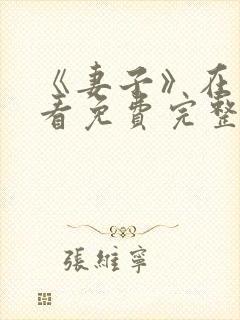 《妻子》在
看免费完整
張維寧